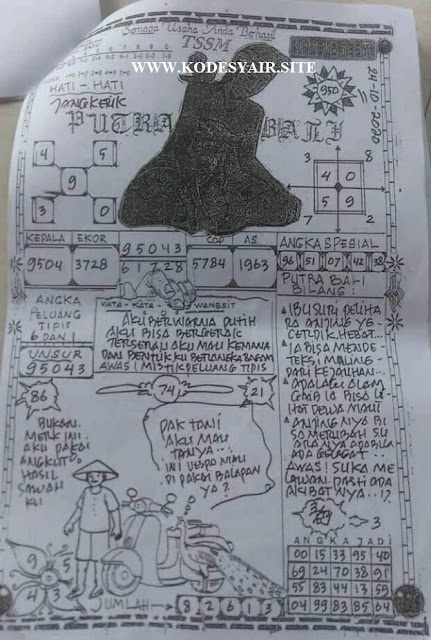 Semoga Usaha Anda Berhasil
TSSM
WWW.KODESYAIR.SITE
HATI - HATI
JANGKERIK
PUTRA BALI
950
21-10-2020
4 5
9
3 0
3 8
4 0
5 9
7 2
KEPALA EKOR
9504 3728
95043
61728
COP AS
5784 1963
ANGKA SPESIAL
96 51 07 42 38
ANGKA
PELUANG
TIPIS
6 DAN 1
UNSUR
95043
KATA - KATA WANGSIT
AKU BERWARNA PUTIH
AKU BISA BERGERAK
TERSERAH AKU MAU KEMANA
DAN BENTUKKU BERANEKA RAGAM
AWAS! MISTIK PELUANG TIPIS
PUTRA BALI
BILANG:
IBU SURI PELIHA
RA ANJING YG
CERDIK, HEBAT...
IA BISA MENDE -
TEKSI MALING -
DARI KEJAUHAN...
ADALAGI ALAM
GHAIB IA BISA LI
HAT DEWA MAUT
ANJINGNYA BI
SA MERUBAH SU
ARANYA APABILA
ADA
AWAS! SUKA ME
LAWAN PASTI ADA
AKIBATNYA...!?
86
74
21
BUKAN
MESIN INI..
AKU PAKAI
ANGKUT
HASIL
SAWAH
KU
PAK TANI
AKU MAU
TANYA...
INI VESPA MAU
DI PAKAI BALAPAN
YA?
3
9 5
4 3
JUMLAH 8 2 6 1 3
ANGKA JADI
00 15 33 95 40
69 24 70 38 91
55 83 44 13 59
04 99 83 85 64